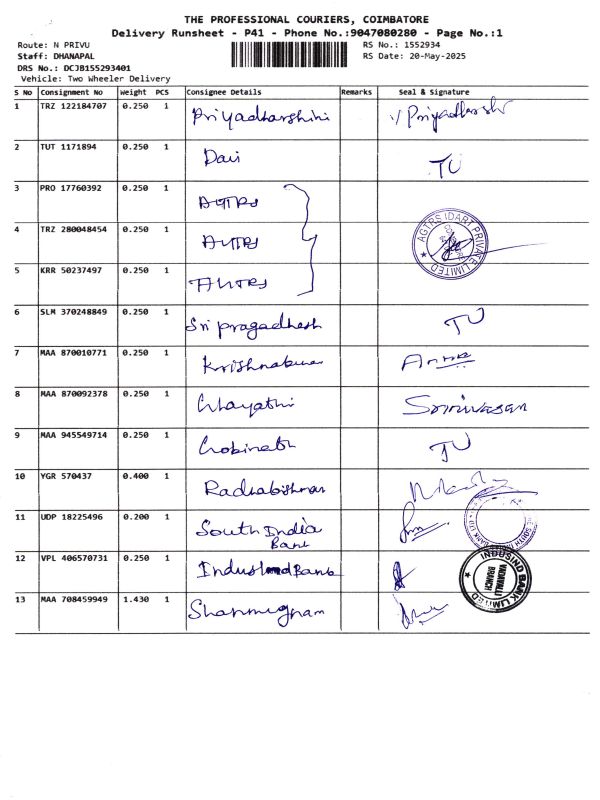 THE PROFESSIONAL COURIERS, COIMBATORE
Delivery Runsheet - P41 - Phone No.:9047080280 - Page No.:1
Route: N PRIVU RS No.: 1552934
Staff: DHANAPAL RS Date: 20-May-2025
DRS No.: DCJB155293401
Vehicle: Two Wheeler Delivery
S No Consignment No Weight PCS Consignee Details Remarks Seal & Signature
1 TRZ 122184707 0.250 1 Priyadharshini
2 TUT 1171894 0.250 1 TU
3 PRO 17760392 0.250 1
4 TRZ 280048454 0.250 1 AGTRS IDART PRIVATE LIMITED
5 KRR 50237497 0.250 1
6 SLM 370248849 0.250 1 Sri pragadhesh TU
7 MAA 870010771 0.250 1 Krishnakumar
8 MAA 870092378 0.250 1 Srinivasan
9 MAA 945549714 0.250 1 Gobinath TU
10 YGR 570437 0.400 1
11 UDP 18225496 0.200 1 South India
Bank
12 VPL 406570731 0.250 1 IndusIndBank INDUSIND BANK LIMITED
BRANCH
13 MAA 708459949 1.430 1 Shanmugnam